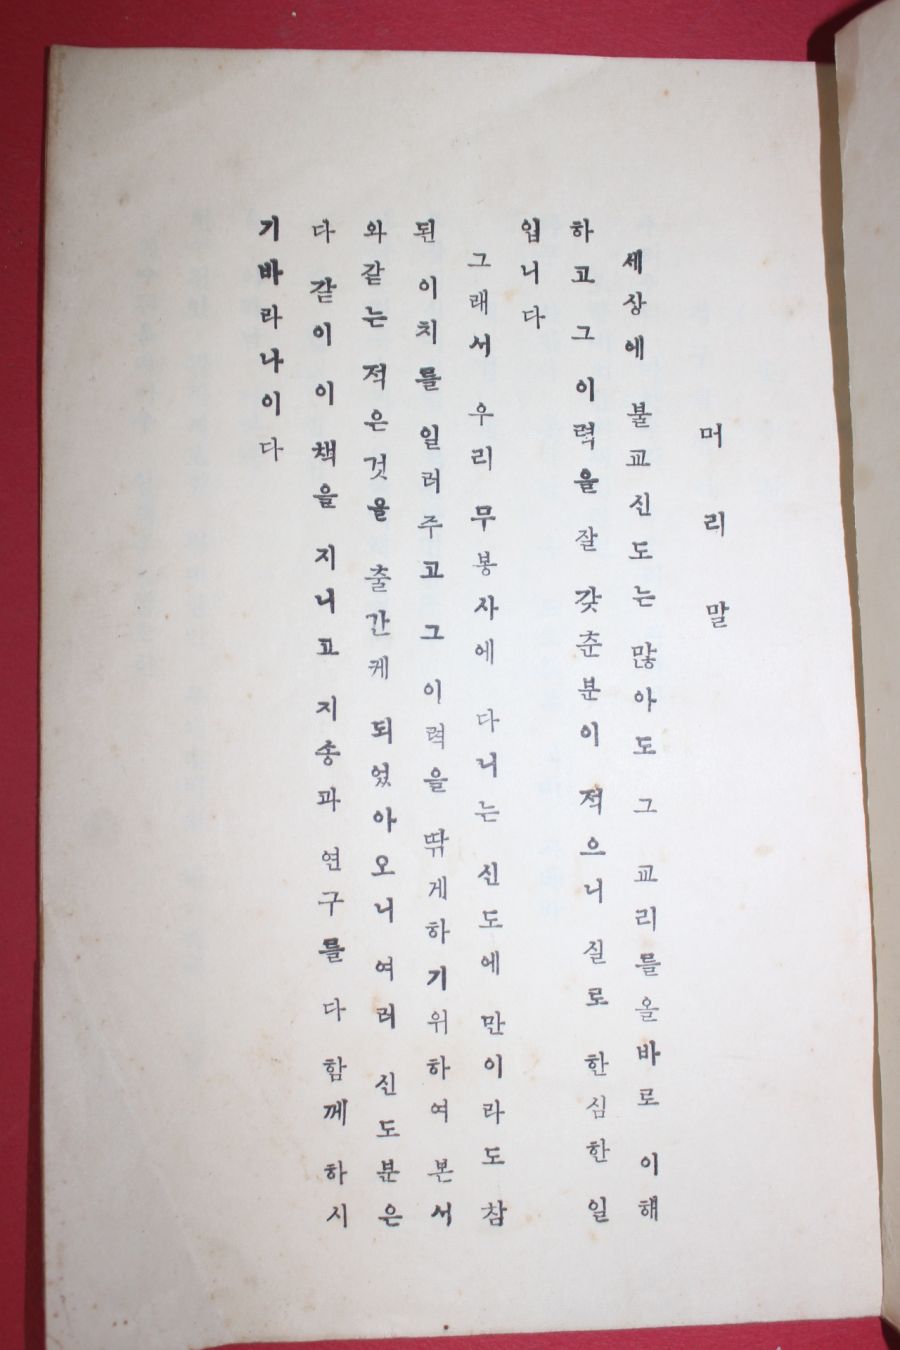 머리말
세상에 불교신도는 많아도 그 교리를올바로 이해
하고 그 이력을 잘 갖춘분이 적으니 실로 한심한 일
입니다
그래서 우리 무봉사에 다니는 신도에 만이라도 참
된 이치를 일러주고그 이력을 딲게하기위하여 본서
와같는 적은것을 출간케 되었아오니 여러 신도분은
다 같이 이 책을 지니고 지송과 연구를 다 함께 하시
기바라나이다